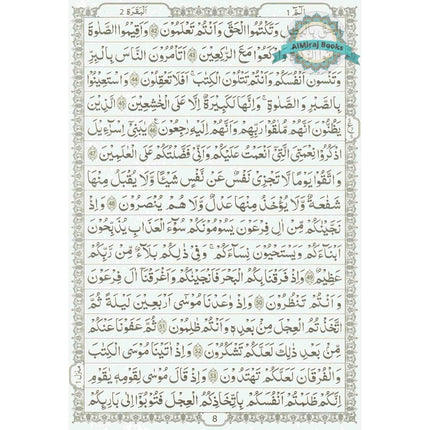 الٓمّٓ ١
اَلْبَقَرَة 2
AlMiraj Books
وَتَكْتُمُوا الْحَقَّ وَاَنْتُمْ تَعْلَمُوْنَ ﴿42﴾ وَاَقِيْمُوا الصَّلٰوةَ
وَارْكَعُوْا مَعَ الرّٰكِعِيْنَ ﴿43﴾ اَتَاْمُرُوْنَ النَّاسَ بِالْبِرِّ
وَتَنْسَوْنَ اَنْفُسَكُمْ وَاَنْتُمْ تَتْلُوْنَ الْكِتٰبَ ؕ اَفَلَا تَعْقِلُوْنَ ﴿44﴾ وَاسْتَعِيْنُوْا
بِالصَّبْرِ وَالصَّلٰوةِ ؕ وَاِنَّهَا لَكَبِيْرَةٌ اِلَّا عَلَى الْخٰشِعِيْنَ ﴿45﴾ الَّذِيْنَ
يَظُنُّوْنَ اَنَّهُمْ مُّلٰقُوْا رَبِّهِمْ وَاَنَّهُمْ اِلَيْهِ رٰجِعُوْنَ ﴿46﴾ يٰبَنِيْۤ اِسْرَآءِيْلَ
اذْكُرُوْا نِعْمَتِيَ الَّتِيْۤ اَنْعَمْتُ عَلَيْكُمْ وَاَنِّيْ فَضَّلْتُكُمْ عَلَى الْعٰلَمِيْنَ ﴿47﴾
وَاتَّقُوْا يَوْمًا لَّا تَجْزِيْ نَفْسٌ عَنْ نَّفْسٍ شَيْـًٔا وَّلَا يُقْبَلُ مِنْهَا
شَفَاعَةٌ وَّلَا يُؤْخَذُ مِنْهَا عَدْلٌ وَّلَا هُمْ يُنْصَرُوْنَ ﴿48﴾ وَاِذْ
نَجَّيْنٰكُمْ مِّنْ اٰلِ فِرْعَوْنَ يَسُوْمُوْنَكُمْ سُوْٓءَ الْعَذَابِ يُذَبِّحُوْنَ
اَبْنَآءَكُمْ وَيَسْتَحْيُوْنَ نِسَآءَكُمْ ؕ وَفِيْ ذٰلِكُمْ بَلَآءٌ مِّنْ رَّبِّكُمْ
عَظِيْمٌ ﴿49﴾ وَاِذْ فَرَقْنَا بِكُمُ الْبَحْرَ فَاَنْجَيْنٰكُمْ وَاَغْرَقْنَاۤ اٰلَ فِرْعَوْنَ
وَاَنْتُمْ تَنْظُرُوْنَ ﴿50﴾ وَاِذْ وٰعَدْنَا مُوْسٰۤى اَرْبَعِيْنَ لَيْلَةً ثُمَّ
اتَّخَذْتُمُ الْعِجْلَ مِنْۢ بَعْدِهٖ وَاَنْتُمْ ظٰلِمُوْنَ ﴿51﴾ ثُمَّ عَفَوْنَا عَنْكُمْ
مِّنْۢ بَعْدِ ذٰلِكَ لَعَلَّكُمْ تَشْكُرُوْنَ ﴿52﴾ وَاِذْ اٰتَيْنَا مُوْسَى الْكِتٰبَ
وَالْفُرْقَانَ لَعَلَّكُمْ تَهْتَدُوْنَ ﴿53﴾ وَاِذْ قَالَ مُوْسٰى لِقَوْمِهٖ يٰقَوْمِ
اِنَّكُمْ ظَلَمْتُمْ اَنْفُسَكُمْ بِاتِّخَاذِكُمُ الْعِجْلَ فَتُوْبُوْۤا اِلٰى بَارِىِٕكُمْ
8